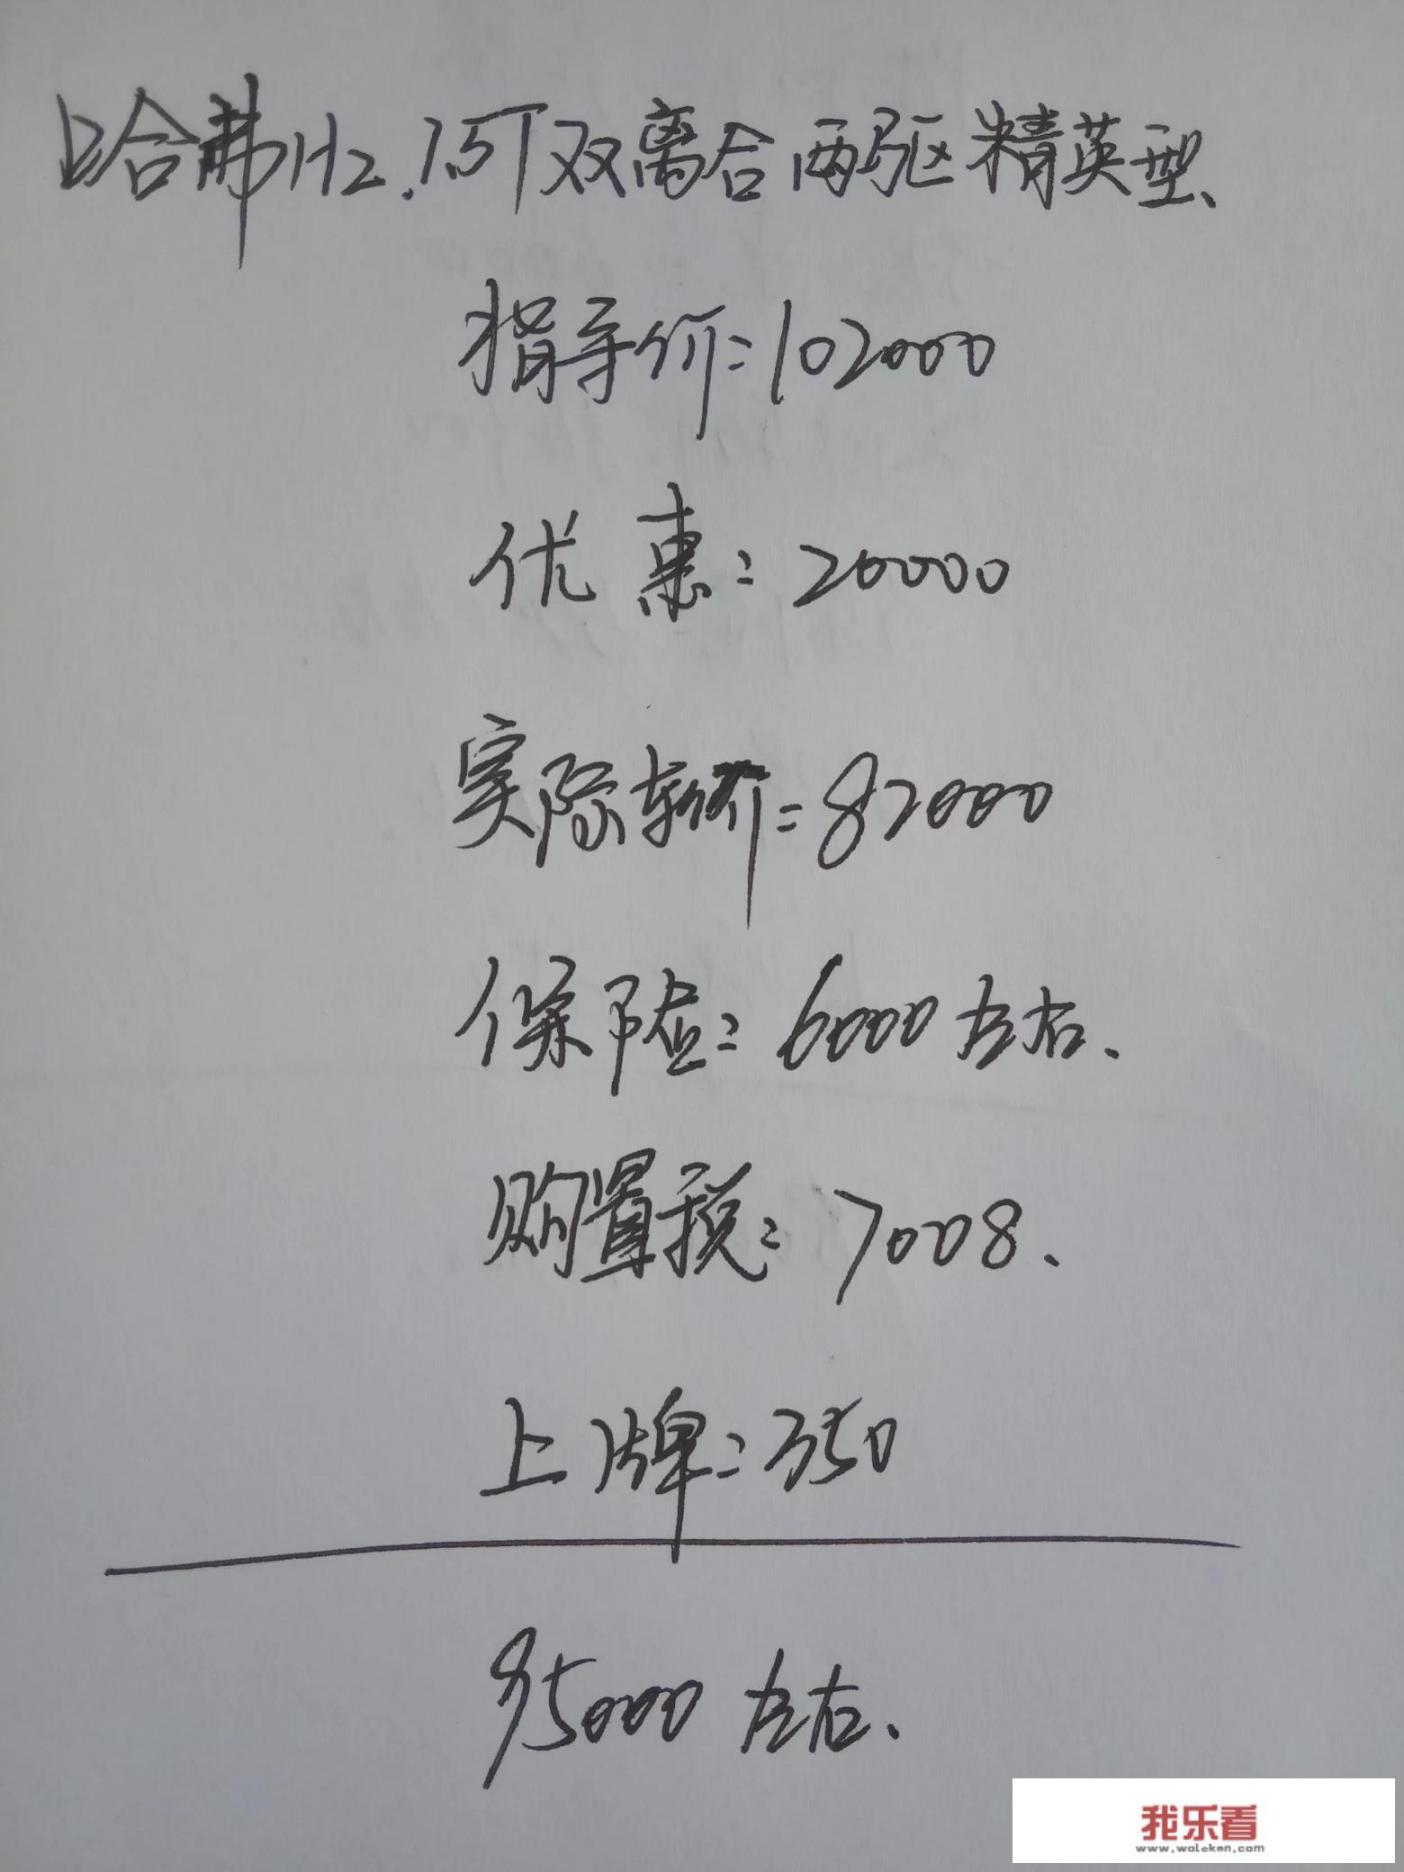 哈弗H2.1.5T双离合两驱精英型、
指导价:102000
优惠:20000
实际车价:82000
保险:6000左右、
购置税:7008、
上牌:350
95000左右、
我乐看
www.woleken.com